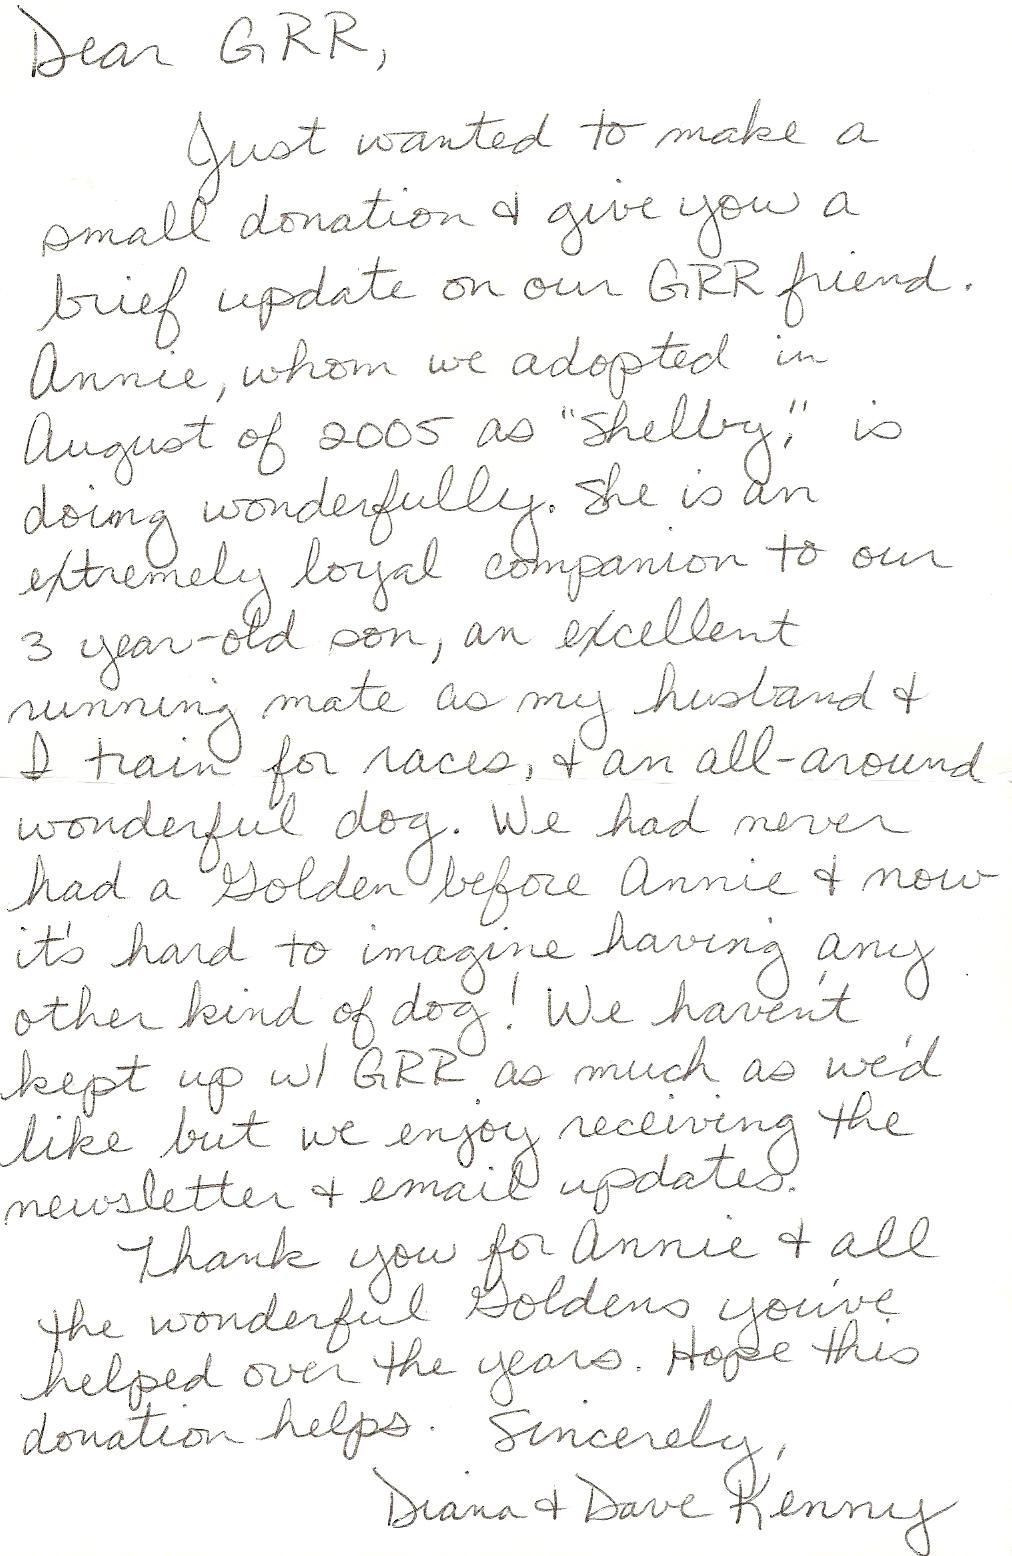 Dear GRR,
Just wanted to make a
small donation & give you a
brief update on our GRR friend.
Annie, whom we adopted in
August of 2005 as "Shelby," is
doing wonderfully. She is an
extremely loyal companion to our
3 year-old son, an excellent
running mate as my husband &
I train for races, & an all-around
wonderful dog. We had never
had a Golden before Annie & now
it's hard to imagine having any
other kind of dog! We haven't
kept up w/ GRR as much as we'd
like but we enjoy receiving the
newsletter & email updates.
Thank you for Annie & all
the wonderful Goldens you've
helped over the years. Hope this
donation helps. Sincerely,
Diana & Dave Kenny